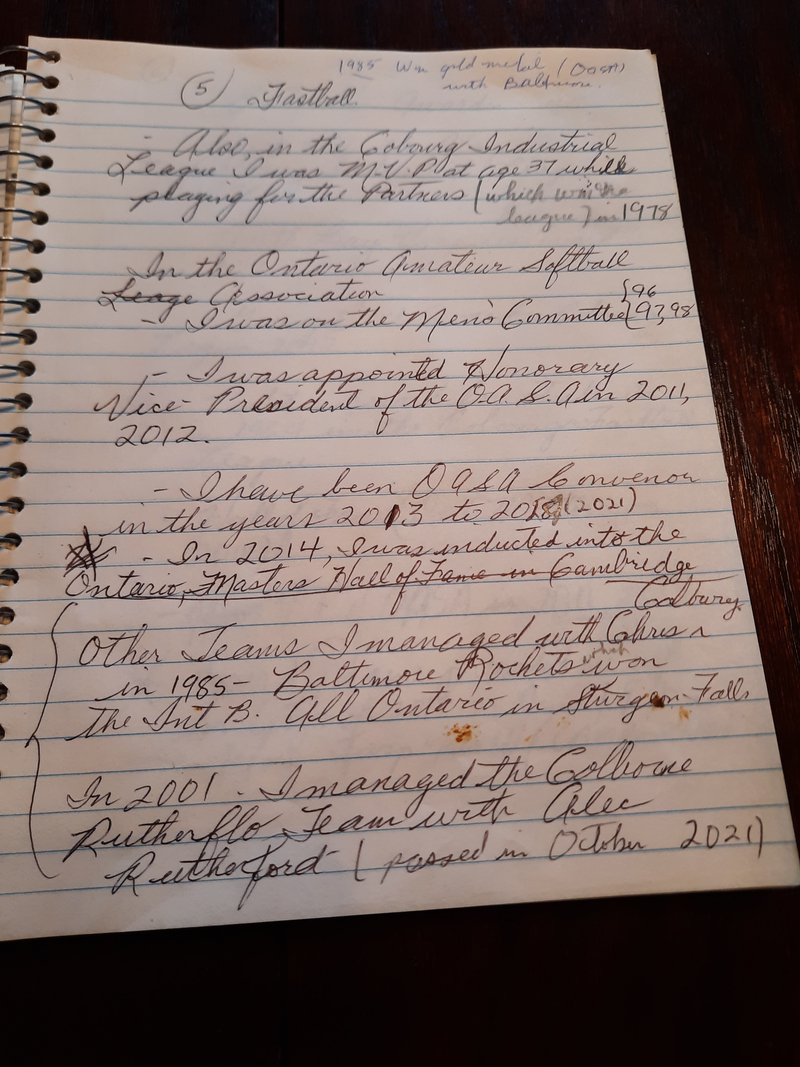 1985 Won gold medal (OASA)
with Baltimore.
5 Fastball
- Also, in the Cobourg Industrial
League I was M.V.P at age 37 while
playing for the Partners (which won the
league) in 1978
In the Ontario Amateur Softball
Leage Association
- I was on the Men's Committee {96
{97,98
- I was appointed Honorary
Vice-President of the O.A.S.A in 2011,
2012.
- I have been OASA Convenor
in the years 2013 to 2018 (2021)
- In 2014, I was inducted into the
Ontario, Masters Hall of Fame in Cambridge
Other Teams I managed with Chris
in 1985 - Baltimore Rockets which won
the Int B. All Ontario in Sturgeon Falls
In 2001 - I managed the Colborne
Rutherflo Team with Alec
Rutherford (passed in October 2021)